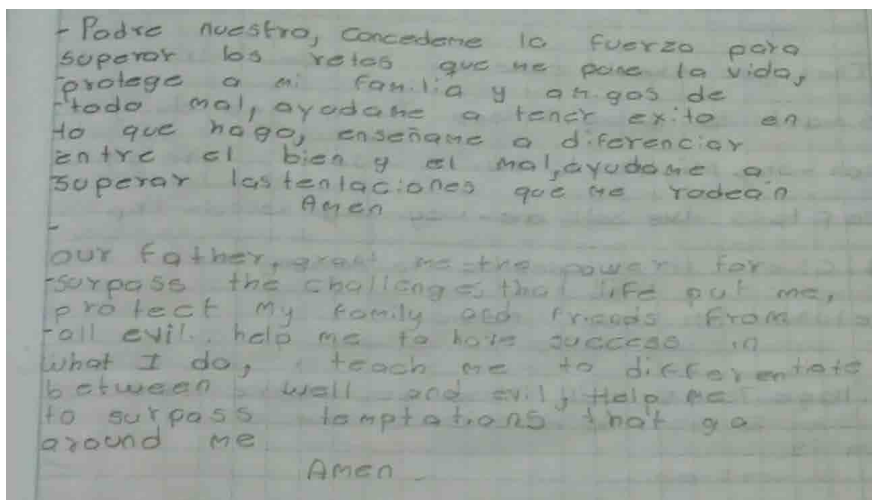 - Padre nuestro, concedeme la fuerza para
superar los retos que me pone la vida,
protege a mi familia y amigos de
todo mal, ayudame a tener exito en
lo que hago, enseñame a diferenciar
entre el bien y el mal, ayudame a
superar las tentaciones que me rodean
Amen
-
our father, grant me the power for
surpass the challenges that life put me,
protect my family and friends from
all evil, help me to have success in
what I do, teach me to differentiate
between well and evil, Help me
to surpass temptations that go
around me
Amen